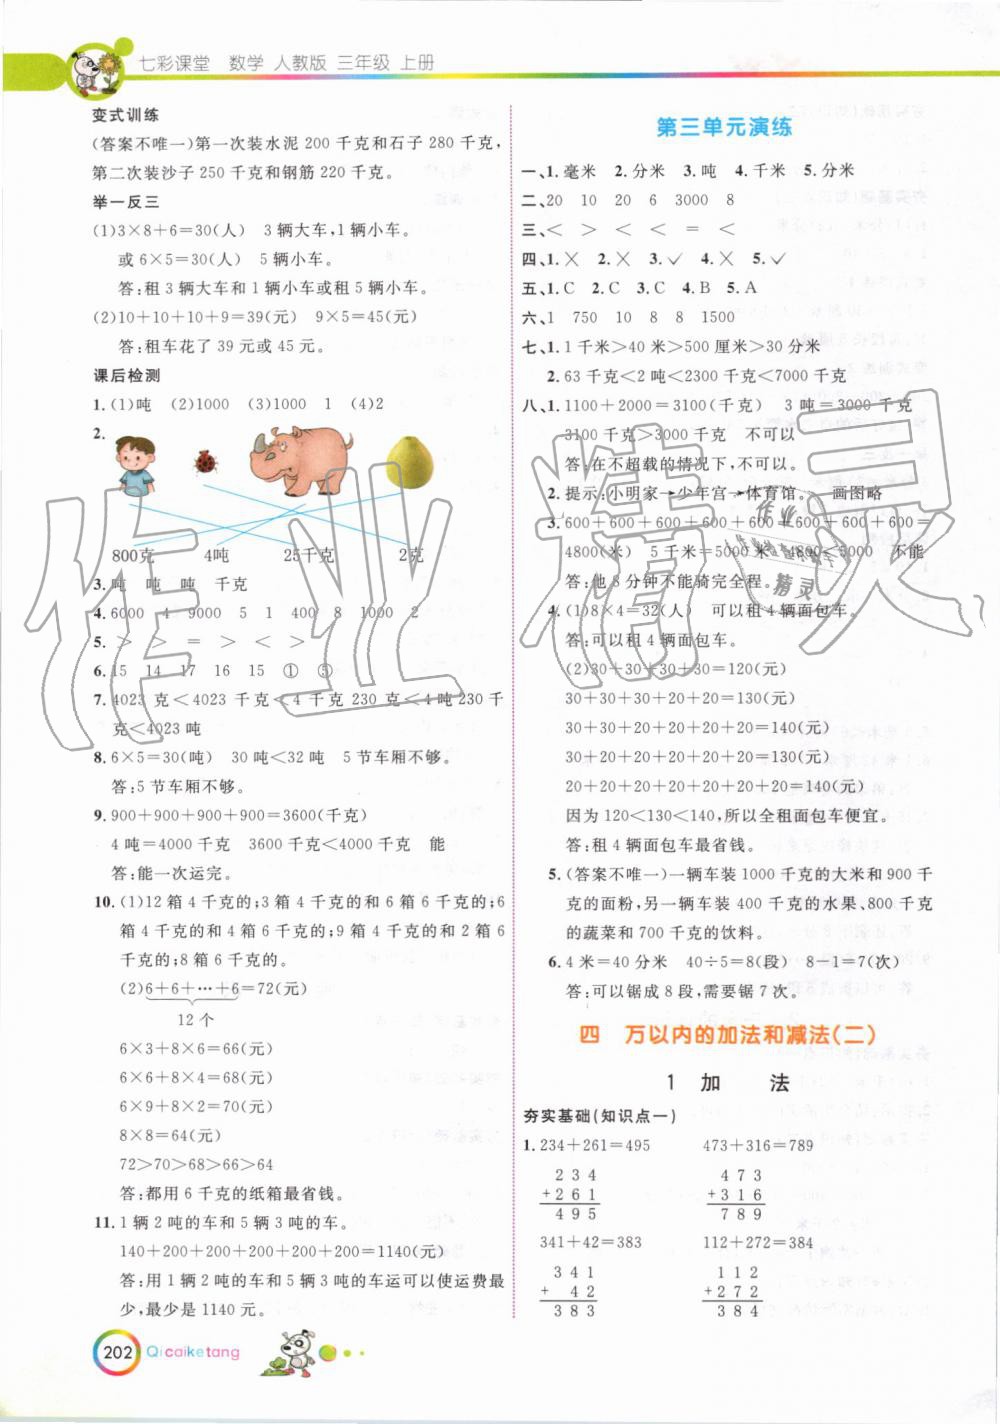 七彩课堂 数学 人教版 三年级 上册
变式训练
(答案不唯一)第一次装水泥 200 千克和石子 280 千克,
第二次装沙子 250 千克和钢筋 220 千克。
举一反三
(1)3×8+6=30(人) 3 辆大车,1 辆小车。
或 6×5=30(人) 5 辆小车。
答:租 3 辆大车和 1 辆小车或租 5 辆小车。
(2)10+10+10+9=39(元) 9×5=45(元)
答:租车花了 39 元或 45 元。
课后检测
1. (1)吨 (2)1000 (3)1000 1 (4)2
2.
800克 4吨 25千克 2克
3. 吨 吨 吨 千克
4. 6000 4 9000 5 1 400 8 1000 2
5. > > = > < >
6. 15 14 17 16 15 ① ⑤
7. 4023 克<4023 千克<4 千克 230 克<4 吨 230 千
克<4023 吨
8. 6×5=30(吨) 30 吨<32 吨 5 节车厢不够。
答:5 节车厢不够。
9. 900+900+900+900=3600(千克)
4 吨=4000 千克 3600 千克<4000 千克 能
答:能一次运完。
10. (1)12 箱 4 千克的;3 箱 4 千克的和 6 箱 6 千克的;6
箱 4 千克的和 4 箱 6 千克的;9 箱 4 千克的和 2 箱 6
千克的;8 箱 6 千克的。
(2)6+6+…+6=72(元)
12 个
6×3+8×6=66(元)
6×6+8×4=68(元)
6×9+8×2=70(元)
8×8=64(元)
72>70>68>66>64
答:都用 6 千克的纸箱最省钱。
11. 1 辆 2 吨的车和 5 辆 3 吨的车。
140+200+200+200+200+200=1140(元)
答:用 1 辆 2 吨的车和 5 辆 3 吨的车运可以使运费最
少,最少是 1140 元。
202 Qicaiketang
第三单元演练
一、1.毫米 2.分米 3.吨 4.千米 5.分米
二、20 10 20 6 3000 8
三、< > < < = <
四、1.× 2.× 3.✓ 4.× 5.✓
五、1.C 2.C 3.C 4.B 5.A
六、1 750 10 8 8 1500
七、1. 1 千米>40 米>500 厘米>30 分米
2. 63 千克<2 吨<2300 千克<7000 千克
八、1. 1100+2000=3100(千克) 3 吨=3000 千克
3100 千克>3000 千克 不可以
答:在不超载的情况下,不可以。
2. 提示:小明家→少年宫→体育馆。 画图略
3. 600+600+600+600+600+600+600+600=
4800(米) 5 千米=5000 米 4800<5000 不能
答:他 8 分钟不能骑完全程。
4. (1)8×4=32(人) 可以租 4 辆面包车。
答:可以租 4 辆面包车。
(2)30+30+30+30=120(元)
30+30+30+20+20=130(元)
30+30+20+20+20+20=140(元)
30+20+20+20+20+20=130(元)
20+20+20+20+20+20+20=140(元)
因为 120<130<140,所以全租面包车便宜。
答:租 4 辆面包车最省钱。
5. (答案不唯一)一辆车装 1000 千克的大米和 900 千
克的面粉,另一辆车装 400 千克的水果、800 千克
的蔬菜和 700 千克的饮料。
6. 4 米=40 分米 40÷5=8(段) 8-1=7(次)
答:可以锯成 8 段,需要锯 7 次。
四 万以内的加法和减法(二)
1 加 法
夯实基础(知识点一)
1. 234+261=495 473+316=789
2 3 4 4 7 3
+ 2 6 1 + 3 1 6
4 9 5 7 8 9
341+42=383 112+272=384
3 4 1 1 1 2
+ 4 2 + 2 7 2
3 8 3 3 8 4
作业精灵
作业
精灵